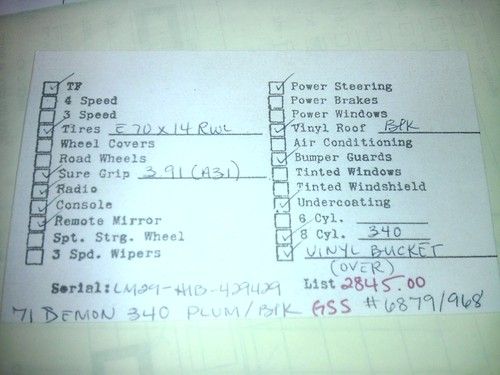 TF
4 Speed
3 Speed
Tires E70 x 14 RWL
Wheel Covers
Road Wheels
Sure Grip 3.91 (A31)
Radio
Console
Remote Mirror
Spt. Strg. Wheel
3 Spd. Wipers
Power Steering
Power Brakes
Power Windows
Vinyl Roof BPK
Air Conditioning
Bumper Guards
Tinted Windows
Tinted Windshield
Undercoating
6 Cyl.
8 Cyl. 340
VINYL BUCKET
(OVER)
Serial: LM29-H1B-429429
List 2845.00
71 DEMON 340 PLUM/BPK GSS #6879/968